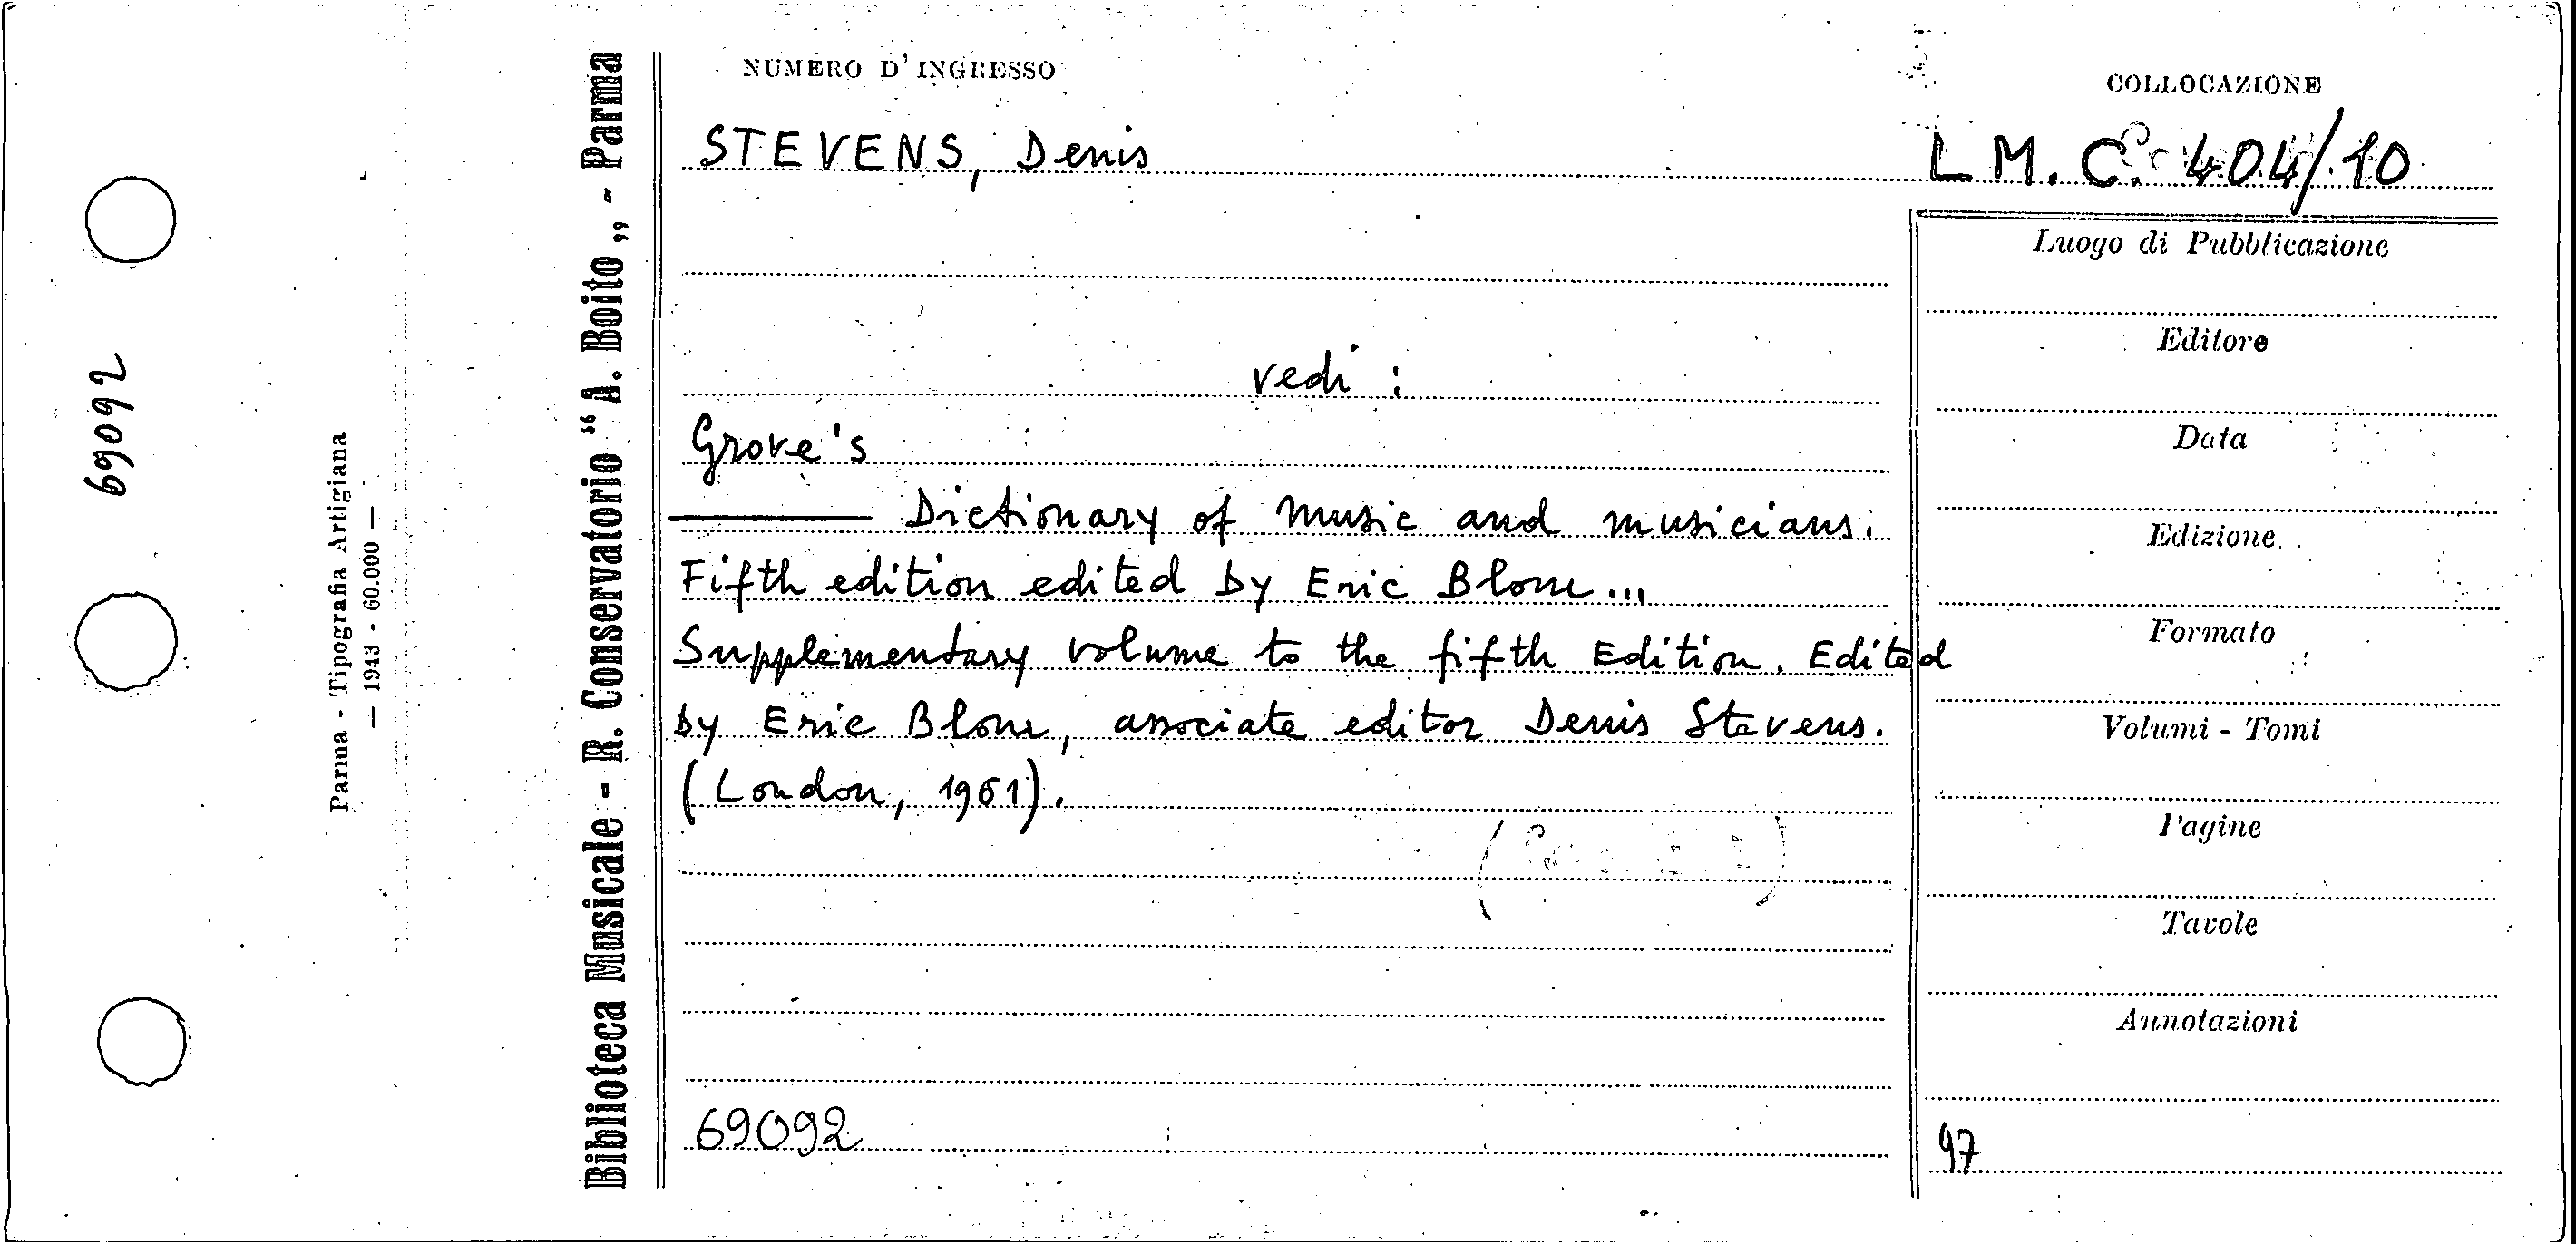 69092
Parma - Tipografia Artigiana
— 1943 - 60.000 —
Biblioteca Musicale - R. Conservatorio “A. Boito„ - Parma
NUMERO D'INGRESSO
STEVENS, Denis
vedi :
Grove's
——— Dictionary of music and musicians.
Fifth edition edited by Eric Blom...
Supplementary volume to the fifth Edition. Edited
by Eric Blom, associate editor Denis Stevens.
(London, 1961).
69092
COLLOCAZIONE
L M. C. 404/10
Luogo di Pubblicazione
Editore
Data
Edizione
Formato
Volumi - Tomi
Pagine
Tavole
Annotazioni
97